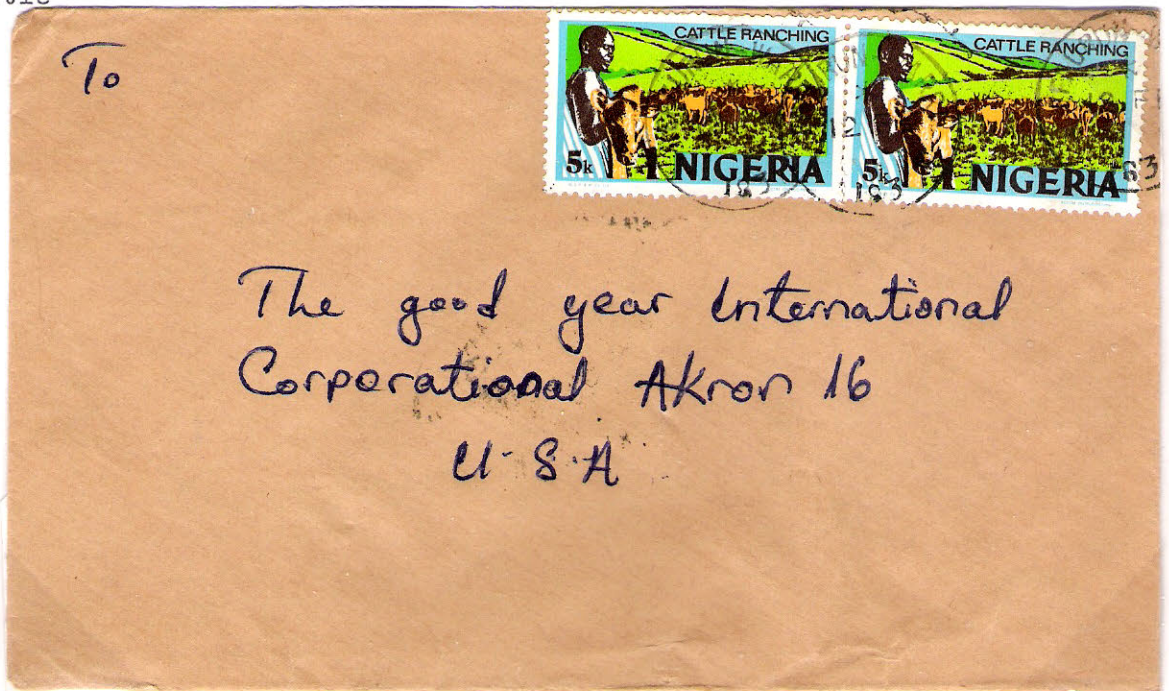 To
CATTLE RANCHING
5k NIGERIA
CATTLE RANCHING
5k NIGERIA
The good year International
Corporational Akron 16
U.S.A